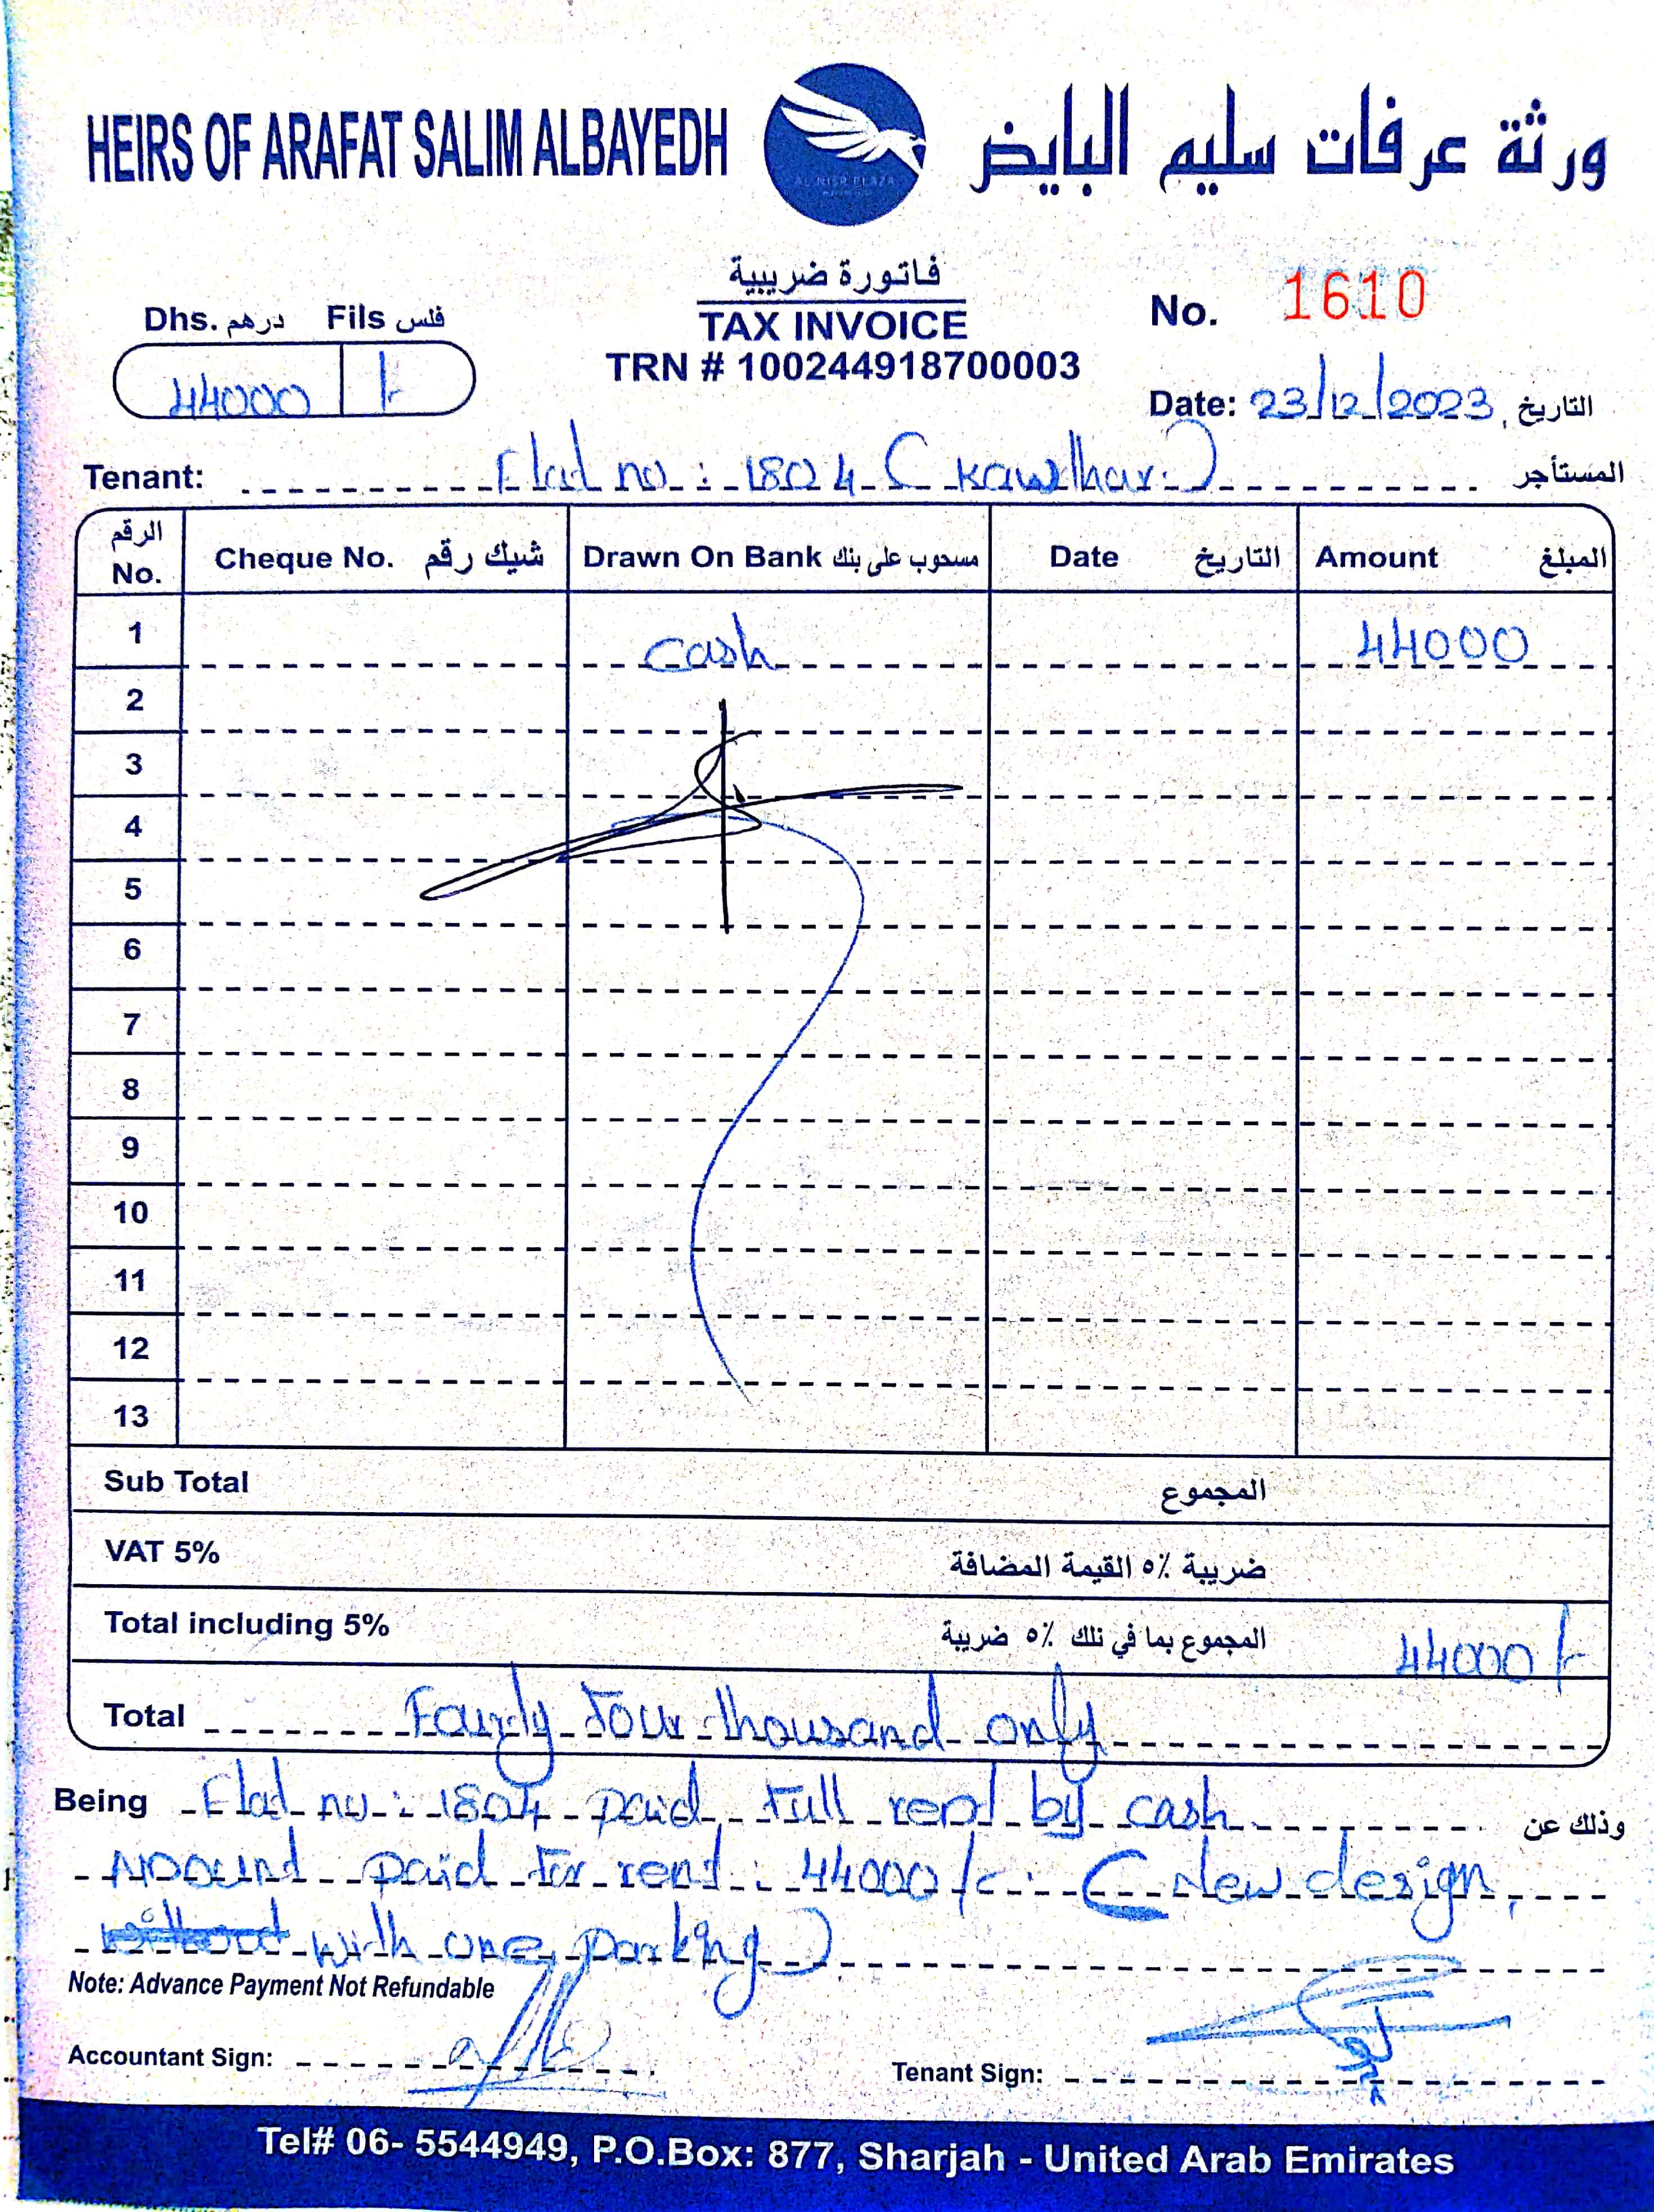 HEIRS OF ARAFAT SALIM ALBAYEDH
ورثة عرفات سليم البايض
AL NISR PLAZA
فاتورة ضريبية
TAX INVOICE
TRN # 100244918700003
No. 1610
Dhs. درهم Fils فلس
44000 /-
Date: 23/12/2023 التاريخ
Tenant: Flat no: 1804 (Kawthar) المستأجر
الرقم No. | Cheque No. شيك رقم | Drawn On Bank مسحوب على بنك | Date التاريخ | Amount المبلغ
1 cash 44000
2
3
4
5
6
7
8
9
10
11
12
13
Sub Total المجموع
VAT 5% ضريبة ٥٪ القيمة المضافة
Total including 5% المجموع بما في تلك ٥٪ ضريبة 44000/-
Total Fourty four thousand only
Being Flat no: 1804 paid full rent by cash وذلك عن
Amount paid for rent: 44000/-. (New design,
with one parking)
Note: Advance Payment Not Refundable
Accountant Sign:
Tenant Sign:
Tel# 06- 5544949, P.O.Box: 877, Sharjah - United Arab Emirates